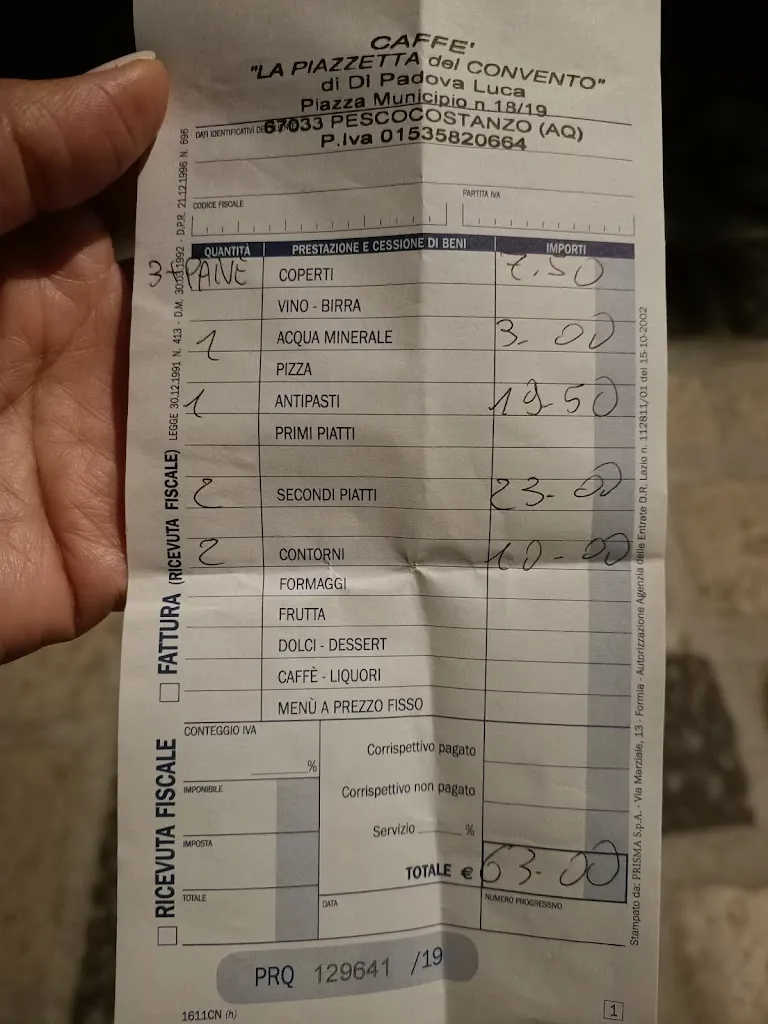 CAFFE'
"LA PIAZZETTA del CONVENTO"
di Di Padova Luca
Piazza Municipio n 18/19
67033 PESCOCOSTANZO (AQ)
P.Iva 01535820664
DATI IDENTIFICATIVI
CODICE FISCALE
PARTITA IVA
QUANTITÀ PRESTAZIONE E CESSIONE DI BENI IMPORTI
3+PANE COPERTI 7.50
VINO - BIRRA
1 ACQUA MINERALE 3-00
PIZZA
1 ANTIPASTI 19-50
PRIMI PIATTI
2 SECONDI PIATTI 23-00
2 CONTORNI 10-00
FORMAGGI
FRUTTA
DOLCI - DESSERT
CAFFÈ - LIQUORI
MENÙ A PREZZO FISSO
CONTEGGIO IVA
%
IMPONIBILE
IMPOSTA
TOTALE
Corrispettivo pagato
Corrispettivo non pagato
Servizio %
TOTALE € 63-00
DATA
NUMERO PROGRESSIVO
PRQ 129641 /19
1611CN (h)
1
RICEVUTA FISCALE
FATTURA (RICEVUTA FISCALE)
LEGGE 30.12.1991 N. 413 - D.M. 30.03.1992 - D.P.R. 21.12.1996 N. 696
Stampato da: PRISMA S.p.A. - Via Marziale, 13 - Formia - Autorizzazione Agenzia delle Entrate D.R. Lazio n. 112811/01 del 15-10-2002